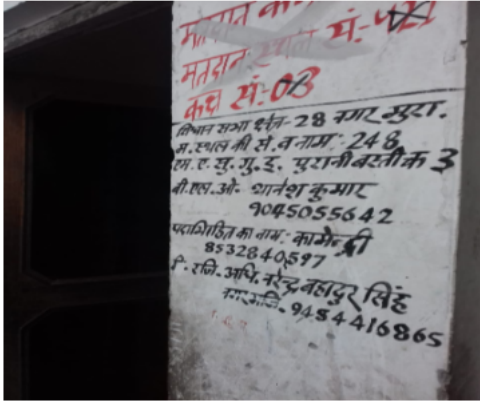 मतदान
मतदान स्थल सं:-
कक्ष सं:-03
विधान सभा क्षेत्र- 28 नगर मुरा.
म. स्थल की सं. व नाम:- 248
एम. ए. सु. गु. इ. पुरानी बस्ती क 3
बी. एल. ओ- थानेश कुमार
9045055642
पदाभिहित का नाम:- कामेन्द्री
8532840597
नि. रजि. अधि. नरेन्द्र बहादुर सिंह
नगर मजि.- 9454416865